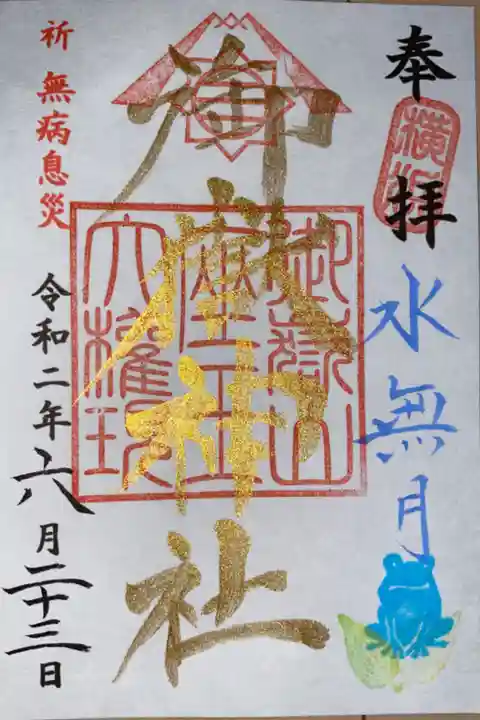 奉拝
水無月
御嶽神社
御嶽山
座王
大権現
祈 無病息災
令和二年六月二十三日